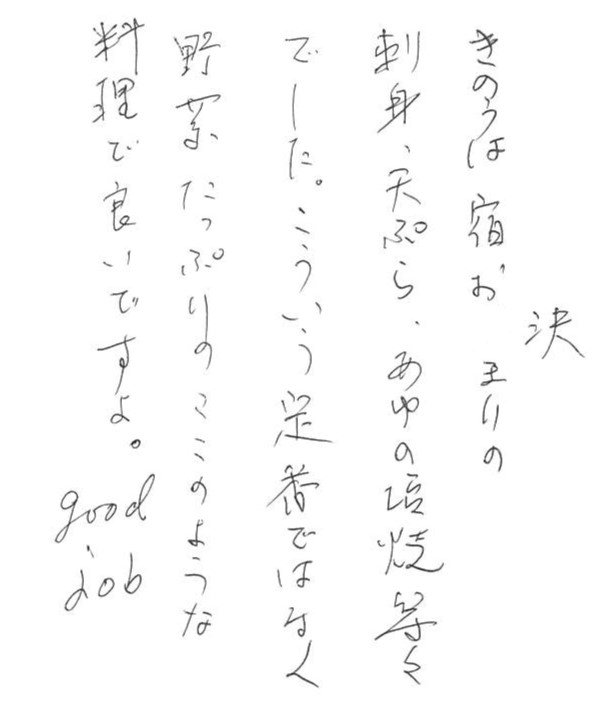 きのうは宿お決まりの
刺身、天ぷら、あゆの塩焼等々
でした。こういう定番ではなく
野菜たっぷりのここのような
料理で良いですよ。
good
job